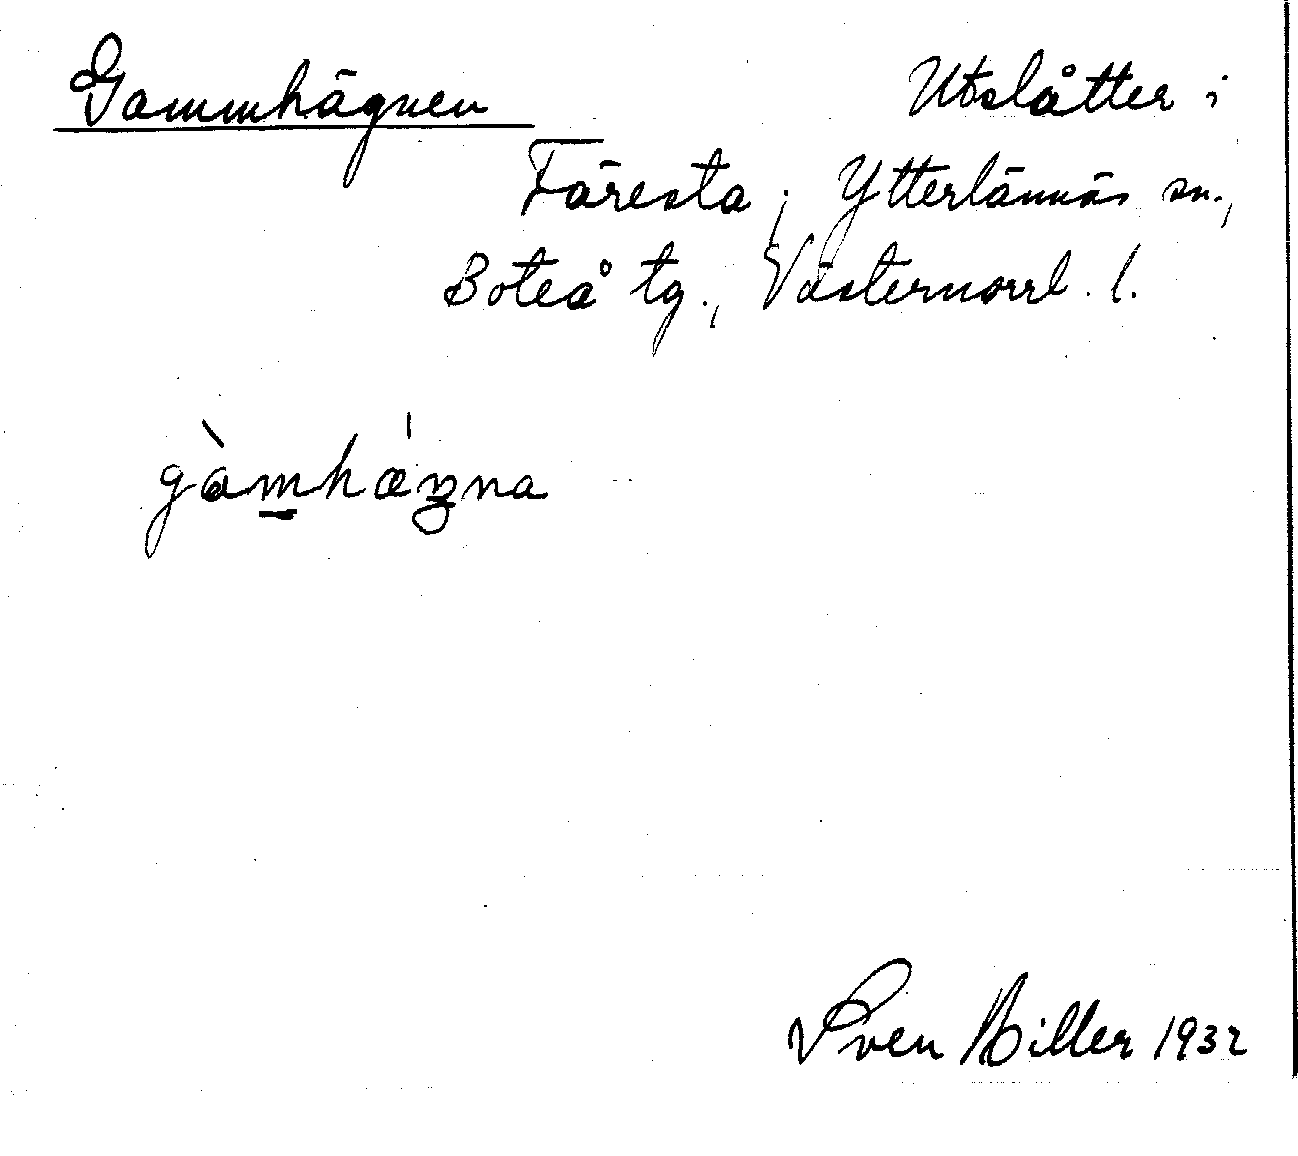 Gammhägnen
Utslåtter i
Färesta, Ytterlännäs sn.,
Boteå tg., Västernorrl. l.
gàmhǽŋna
Sven Hiller 1932